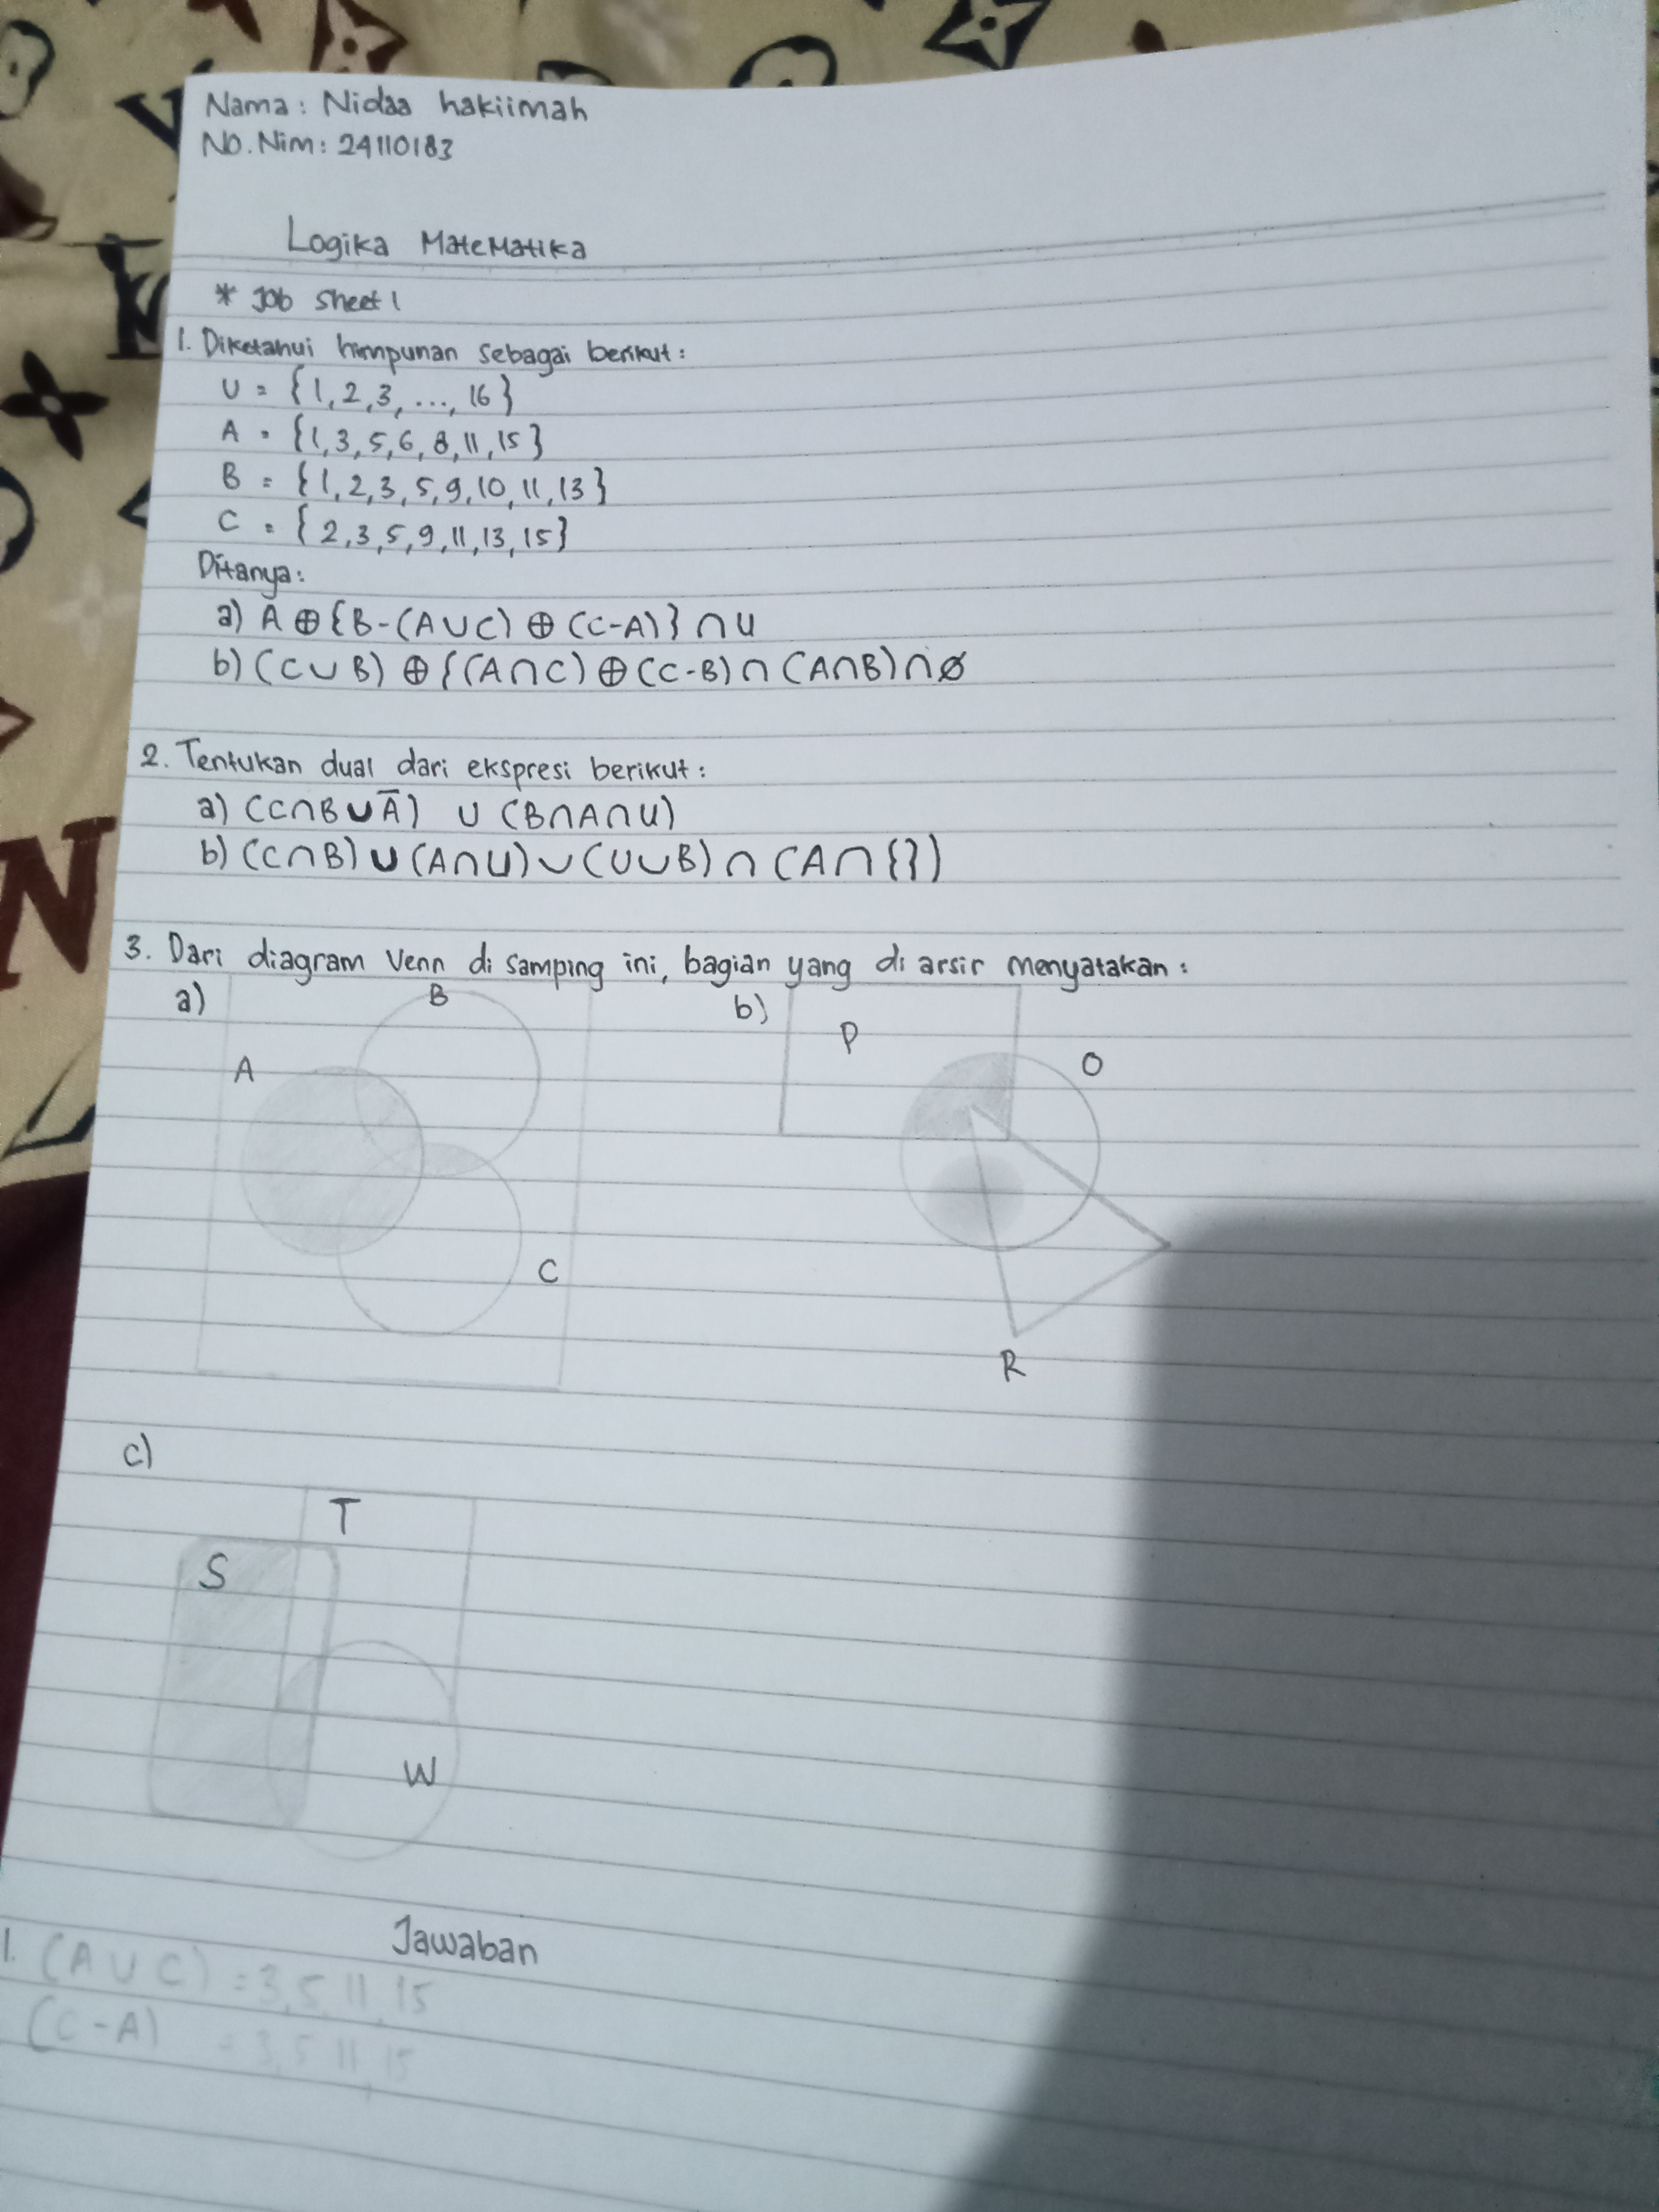 Nama : Nidaa hakiimah
No. Nim : 24110183
Logika Matematika
* Job Sheet 1
1. Diketahui himpunan sebagai berikut :
U = {1, 2, 3, ..., 16}
A = {1, 3, 5, 6, 8, 11, 15}
B = {1, 2, 3, 5, 9, 10, 11, 13}
C = {2, 3, 5, 9, 11, 13, 15}
Ditanya :
a) A ⊕ {B-(A∪C) ⊕ (C-A)} ∩ U
b) (C∪B) ⊕ {(A∩C) ⊕ (C-B) ∩ (A∩B) ∩ ∅
2. Tentukan dual dari ekspresi berikut :
a) (C∩B∪A̅) ∪ (B∩A∩U)
b) (C∩B) ∪ (A∩U) ∪ (U∪B) ∩ (A∩{})
3. Dari diagram Venn di samping ini, bagian yang di arsir menyatakan :
a) B
A
C
b) P
O
R
c)
T
S
W
Jawaban
1. (A∪C) = 3, 5, 11, 15
(C-A) = 3, 5, 11, 15